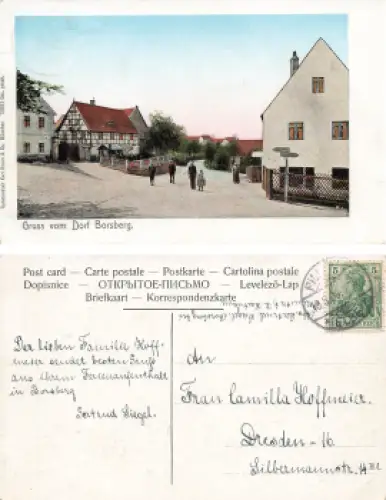 Gruss vom Dorf Borsberg.
Post card — Carte postale — Postkarte — Cartolina postale
Dopisnice — ОТКРЫТОЕ-ПИСЬМО — Levelező-Lap
Briefkaart — Korrespondenzkarte
5 5
Der lieben Familie Hoff-
meier sendet besten Gruß
aus ihrem Ferienaufenthalt
in Borsberg
Gertrud Siegel.
An
Frau Camilla Hoffmeier
Dresden - 16
Silbermannstr. 14